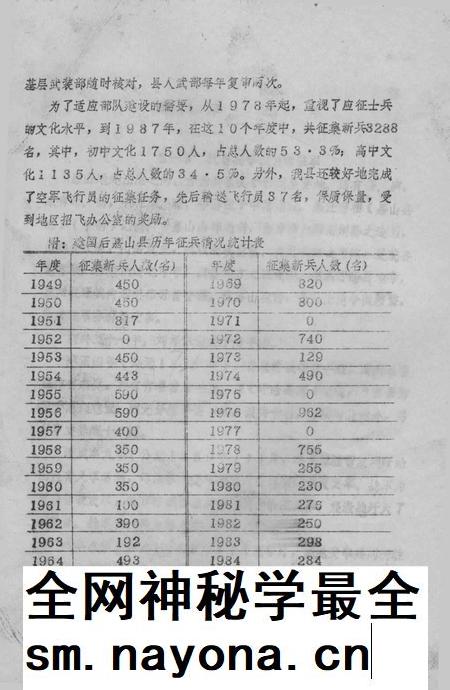 基层武装部随时核对，县人武部每年复审两次。
为了适应部队建设的需要，从1978年起，重视了应征士兵
的文化水平，到1987年，在这10个年度中，共征集新兵3288
名，其中，初中文化1750人，占总人数的53·3%；高中文
化1135人，占总人数的34·5%。另外，我县还较好地完成
了空军飞行员的征集任务，先后输送飞行员37名，保质保量，受
到地区招飞办公室的奖励。
附：建国后嘉山县历年征兵情况统计表
年度 征集新兵人数(名) 年度 征集新兵人数(名)
1949 450 1969 320
1950 450 1970 300
1951 317 1971 0
1952 0 1972 740
1953 450 1973 129
1954 443 1974 490
1955 590 1975 0
1956 590 1976 962
1957 400 1977 0
1958 350 1978 755
1959 350 1979 255
1960 350 1980 230
1961 100 1981 275
1962 390 1982 250
1963 192 1983 298
1964 493 1984 284
全网神秘学最全
sm.nayona.cn